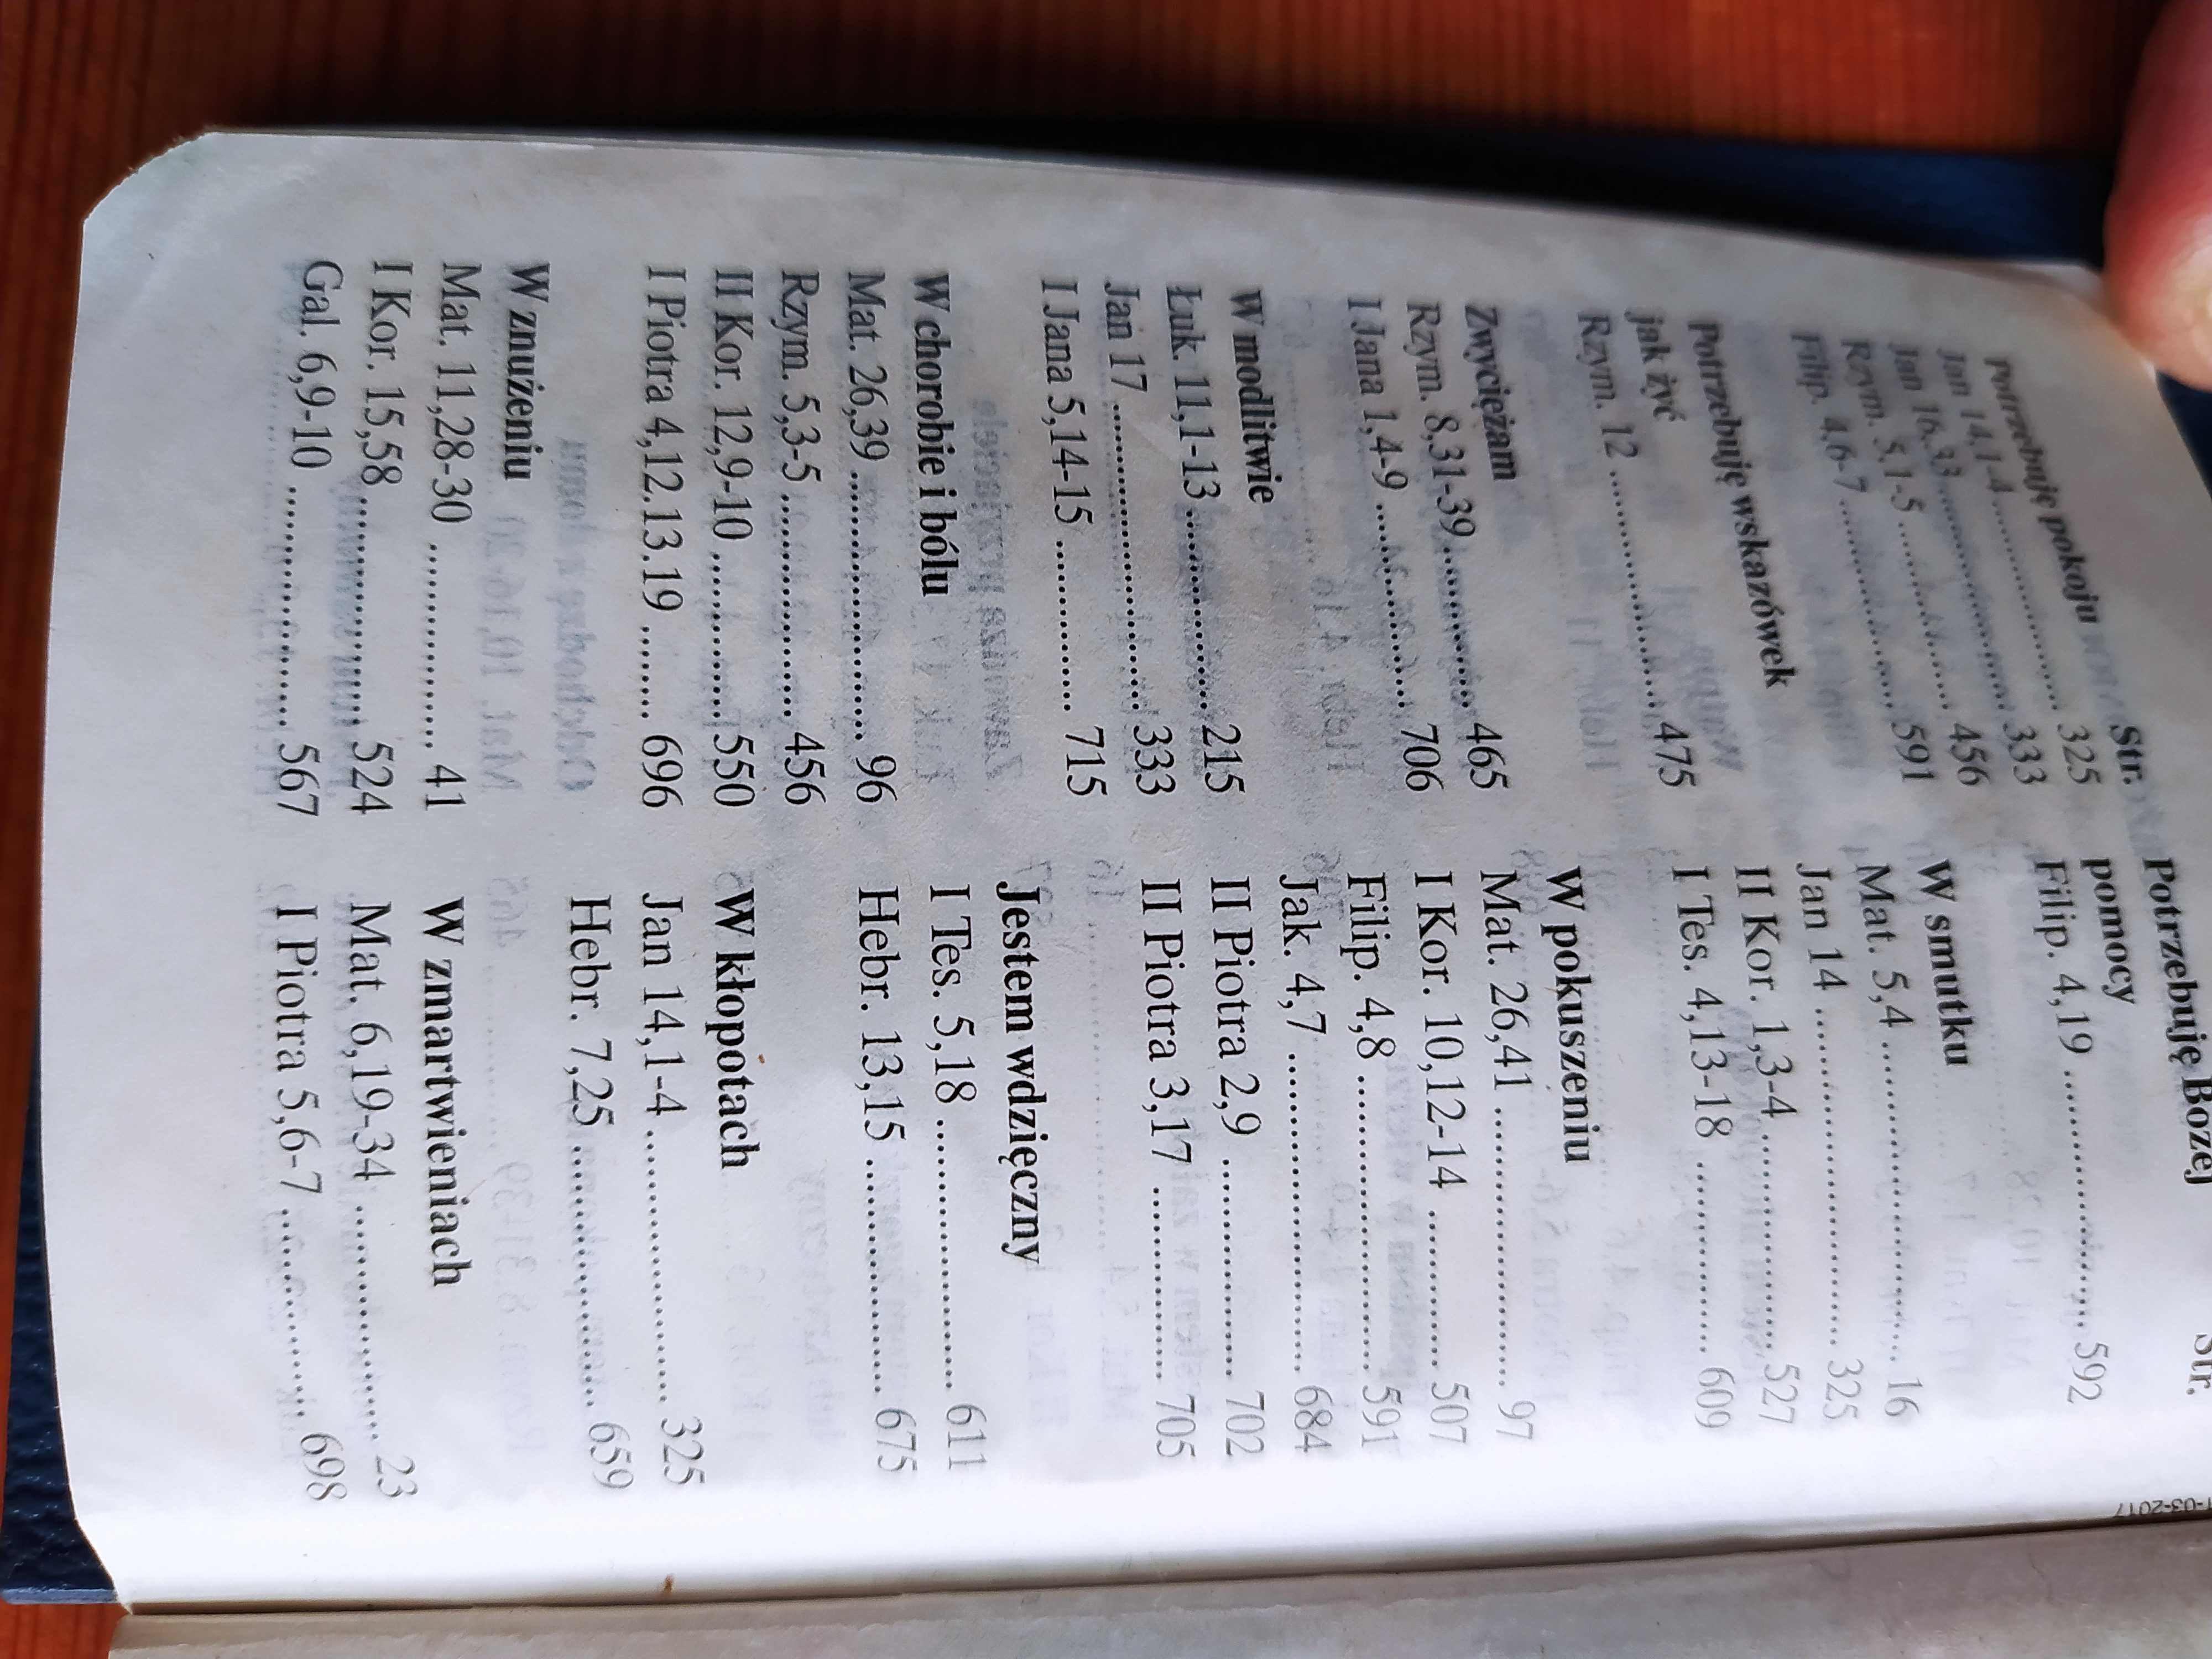 Str.
Potrzebuję pokoju
Jan 14,1-4 ........................ 325
Jan 16,33 ........................ 333
Rzym. 5,1-5 ..................... 456
Filip. 4,6-7 ....................... 591
Potrzebuję wskazówek
jak żyć
Rzym. 12 ......................... 475
Zwyciężam
Rzym. 8,31-39 ................. 465
I Jana 1,4-9 ...................... 706
W modlitwie
Łuk. 11,1-13 .................... 215
Jan 17 .............................. 333
I Jana 5,14-15 .................. 715
W chorobie i bólu
Mat. 26,39 ........................ 96
Rzym. 5,3-5 ..................... 456
II Kor. 12,9-10 ................ 550
I Piotra 4,12.13.19 .......... 696
W znużeniu
Mat. 11,28-30 ................... 41
I Kor. 15,58 ..................... 524
Gal. 6,9-10 ...................... 567
Str.
Potrzebuję Bożej
pomocy
Filip. 4,19 ........................ 592
W smutku
Mat. 5,4 ............................ 16
Jan 14 .............................. 325
II Kor. 1,3-4 .................... 527
I Tes. 4,13-18 .................. 609
W pokuszeniu
Mat. 26,41 ........................ 97
I Kor. 10,12-14 ................ 507
Filip. 4,8 .......................... 591
Jak. 4,7 ............................ 684
II Piotra 2,9 ..................... 702
II Piotra 3,17 ................... 705
Jestem wdzięczny
I Tes. 5,18 ........................ 611
Hebr. 13,15 ..................... 675
W kłopotach
Jan 14,1-4 ........................ 325
Hebr. 7,25 ....................... 659
W zmartwieniach
Mat. 6,19-34 ..................... 23
I Piotra 5,6-7 ................... 698